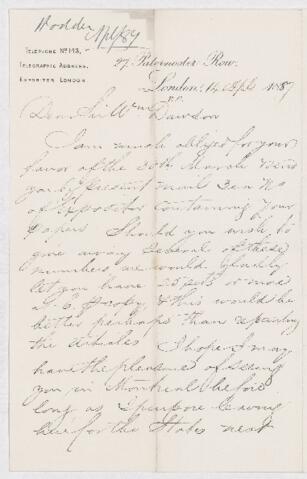 Hodder Apl/87
TELEPHONE No 143,
TELEGRAPHIC ADDRESS,
EXPOSITOR LONDON.
27, Paternoster Row,
London, 14 Apl 1887
E.C.
Dear Sir Wm Dawson
I am much obliged for your
favor of the 30th March I send
you by present mail Jan No
of Expositor containing your
paper Should you wish to
give away several of these
numbers we would gladly
let you have 25 or more
at & this would be
better perhaps than reprinting
the articles I hope I may
have the pleasure of seeing
you in Montreal before
long as I purpose leaving
here for the States next